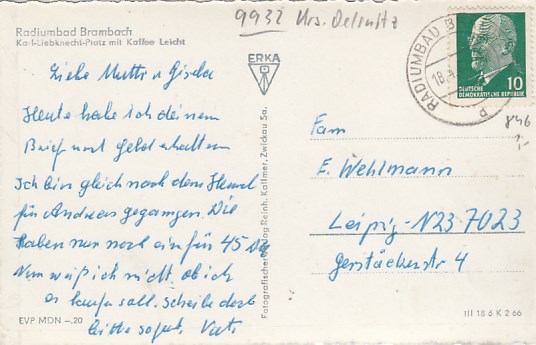 9932 Krs. Oelsnitz
Radiumbad Brambach
Karl-Liebknecht-Platz mit Kaffee Leicht
ERKA
RADIUMBAD B
18.4
d
10
DEUTSCHE
DEMOKRATISCHE REPUBLIK
846
Liebe Mutti u Gisela
Heute habe ich deinen
Brief mit Geld erhalten
Ich bin gleich nach dem Hemd
für Andreas gegangen. Die
haben nur noch ein für 45
Nun weiß ich nicht ob ich
es kaufen soll. schreibe doch
bitte sofort, Vati
Fam
E. Wehlmann
Leipzig-N23 7023
Gerstäckerstr 4
Fotografischer Verlag Reinh. Kallmer, Zwickau Sa.
EVP MDN –,20
III 18 6 K 2 66